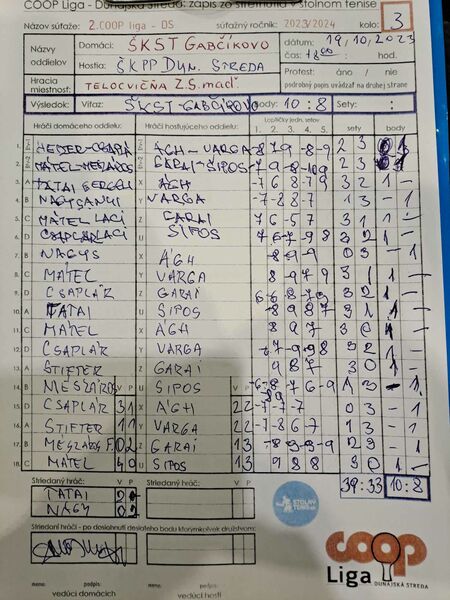 COOP Liga - Dunajská Streda: zápis zo stretnutia v stolnom tenise
Názov súťaže: 2.COOP liga - DS súťažný ročník: 2023/2024 kolo: 3
Názvy oddielov
Domáci: ŠKST GABČÍKOVO
dátum: 19,10,2023
Hostia: ŠKPP DUN. STREDA
čas: 18:00 hod.
Hracia miestnosť: TELOCVIČŇA Z.Š. maď.
Protest: áno / nie
podrobný popis uvádzať na druhej strane
Výsledok: Víťaz: ŠKST GABČÍKOVO Body: 10 : 8 Sety: :
Hráči domáceho oddielu: Hráči hosťujúceho oddielu: Loptičky jedn. setov sety body
1. 2. 3. 4. 5.
1. ÁGH - VARGA 2 3
2. MÁTEL-MESZÁROS GARAI - SIPOS 2 3
3. A TATAI GERGELI X ÁGH -7 6 8 -7 9 3 2 1 -
4. B NAGY SANYI Y VARGA -7 -8 8 -7 1 3 - 1
5. C MÁTEL LACI Z GARAI 7 6 -5 7 3 1 1 -
6. D CSAPLÁR LACI U SIPOS 7 6 -7 -9 8 3 2 1 -
7. B NAGY S X ÁGH -8 -9 -9 0 3 - 1
8. C MÁTEL Y VARGA 8 -9 7 9 3 1 1 -
9. D CSAPLÁR Z GARAI 3 2 1 -
10. A TATAI U SIPOS 3 1 1 -
11. C MÁTEL X ÁGH 8 9 7 3 0 1 -
12. D CSAPLÁR Y VARGA 3 2 1 -
13. A STIFTER Z GARAI 9 8 7 3 0 1 -
14. B MESZÁROS U SIPOS - 1
15. D CSAPLÁR 3 1 X ÁGH 2 2 -7 -7 -7 0 3 - 1
16. A STIFTER 1 1 Y VARGA 2 2 -7 -8 6 -7 1 3 - 1
17. B MESZÁROS F. 0 2 Z GARAI 1 3 2 3 - 1
18. C MÁTEL 4 0 U SIPOS 1 3 9 8 8 3 0 1 -
Striedaný hráč: V P Striedaný hráč: V P 39:33 10:8
TATAI 2 0
NAGY 0 2
Striedaní hráči - po dosiahnutí desiateho bodu ktorýmkoľvek družstvom:
STOLNÝ TENIS.SK
coop
Liga DUNAJSKÁ STREDA
meno: podpis: meno: podpis:
vedúci domácich vedúci hostí